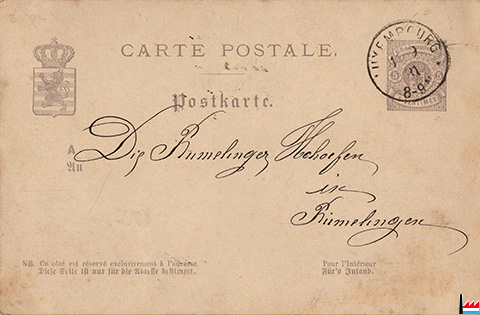 CARTE POSTALE.
LUXEMBOURG
8-9
CENTIMES
Postkarte.
A
An
Die Rumelinger Hohoefen
in
Rümelingen
NB. Ce côté est réservé exclusivement à l'adresse.
Diese Seite ist nur für die Adresse bestimmt.
Pour l'Intérieur
Für's Inland.